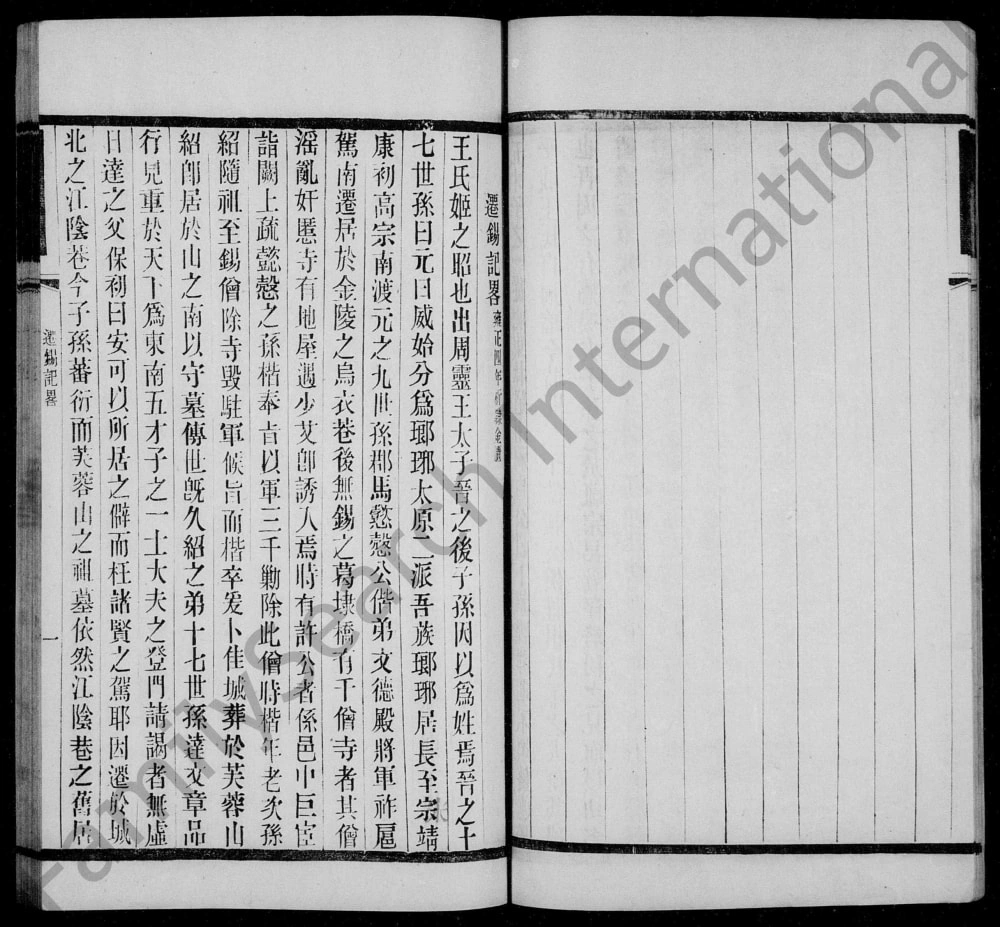 遷錫記畧 雍正四年
王氏姬之昭也出周靈王太子晉之後子孫因以為姓焉晉之十
七世孫曰元曰威始分為瑯琊太原二派吾族瑯琊居長至宗靖
康初高宗南渡元之九世孫郡馬懿慤公偕弟文德殿將軍祚扈
駕南遷居於金陵之烏衣巷後無錫之葛埭橋有千僧寺者其僧
淫亂奸慝寺有地屋遇少艾卽誘入焉時有許公者係邑中巨宦
詣闕上疏懿慤之孫楷奉旨以軍三千勦除此僧時楷年老次孫
紹隨祖至錫僧除寺毀駐軍候旨而楷卒爰卜佳城葬於芙蓉山
紹卽居於山之南以守墓傳世旣久紹之弟十七世孫達文章品
行見重於天下為東南五才子之一士大夫之登門請謁者無虛
日達之父保初曰安可以所居之僻而枉諸賢之駕耶因遷於城
北之江陰巷今子孫蕃衍而芙蓉山之祖墓依然江陰巷之舊居
遷錫記畧
一
FamilySearch International